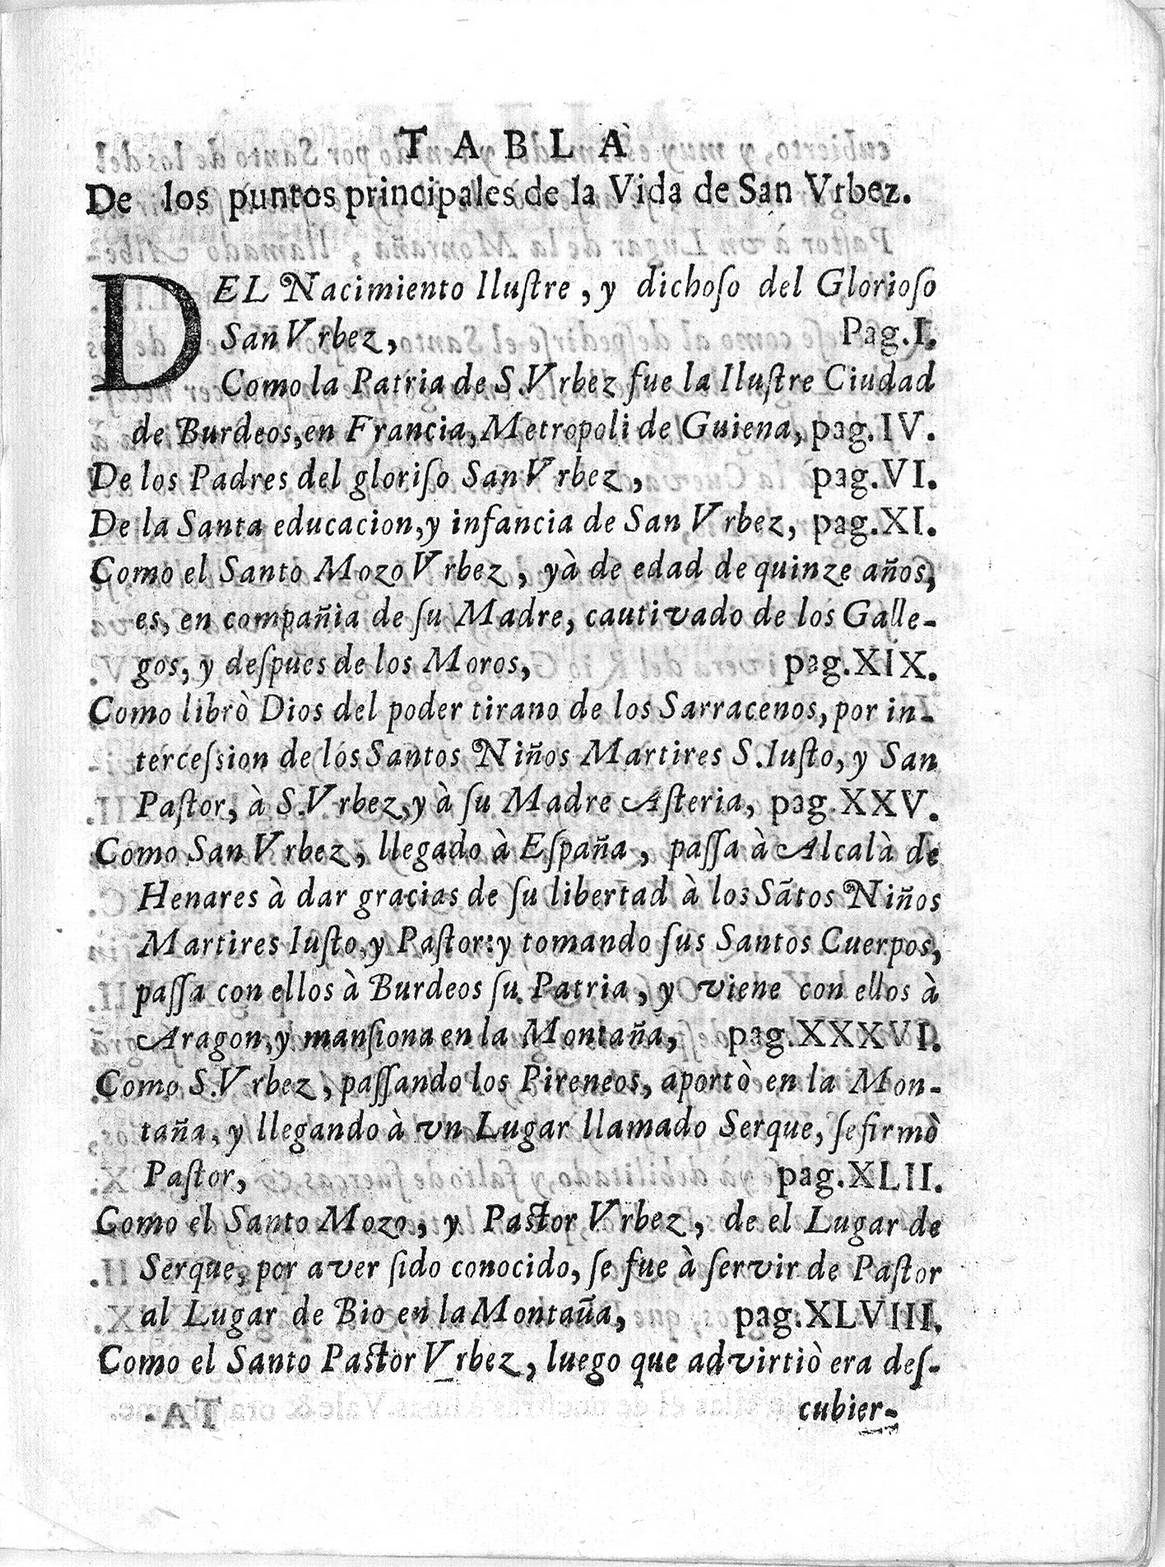 TABLA
De los puntos principales de la Vida de San Vrbez.
DEL Nacimiento Iluſtre, y dichoſo del Glorioſo
San Vrbez, Pag.I.
Como la Patria de S.Vrbez fue la Iluſtre Ciudad
de Burdeos, en Francia, Metropoli de Guiena, pag.IV.
De los Padres del gloriſo San Vrbez, pag.VI.
De la Santa educacion, y infancia de San Vrbez, pag.XI.
Como el Santo Mozo Vrbez, yà de edad de quinze años,
es, en compañia de ſu Madre, cautivado de los Galle-
gos, y deſpues de los Moros, pag.XIX.
Como librò Dios del poder tirano de los Sarracenos, por in-
terceſsion de los Santos Niños Martires S.Iuſto, y San
Paſtor, à S.Vrbez, y à ſu Madre Aſteria, pag.XXV.
Como San Vrbez, llegado à Eſpaña, paſſa à Alcalà de
Henares à dar gracias de ſu libertad à los Sãtos Niños
Martires Iuſto, y Paſtor: y tomando ſus Santos Cuerpos,
paſſa con ellos à Burdeos ſu Patria, y viene con ellos à
Aragon, y manſiona en la Montaña, pag.XXXVI.
Como S.Vrbez, paſſando los Pireneos, aportò en la Mon-
taña, y llegando à vn Lugar llamado Serque, ſe firmò
Paſtor, pag.XLII.
Como el Santo Mozo, y Paſtor Vrbez, de el Lugar de
Serque, por aver ſido conocido, ſe fue à ſervir de Paſtor
al Lugar de Bio en la Montaña, pag.XLVIII.
Como el Santo Paſtor Vrbez, luego que advirtiò era deſ-
cubier-